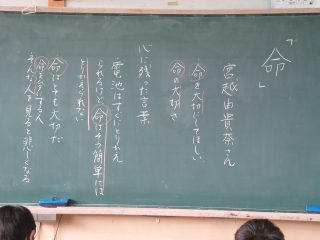 「命」
宮越由貴奈さん
命を大切にしてほしい
命の大切さ
心に残った言葉
電池はすぐにとりかえ
られるけど命はそう簡単には
とりかえられない
命はとても大切だ
命をむだにする人
そんな人を見ると悲しくなる